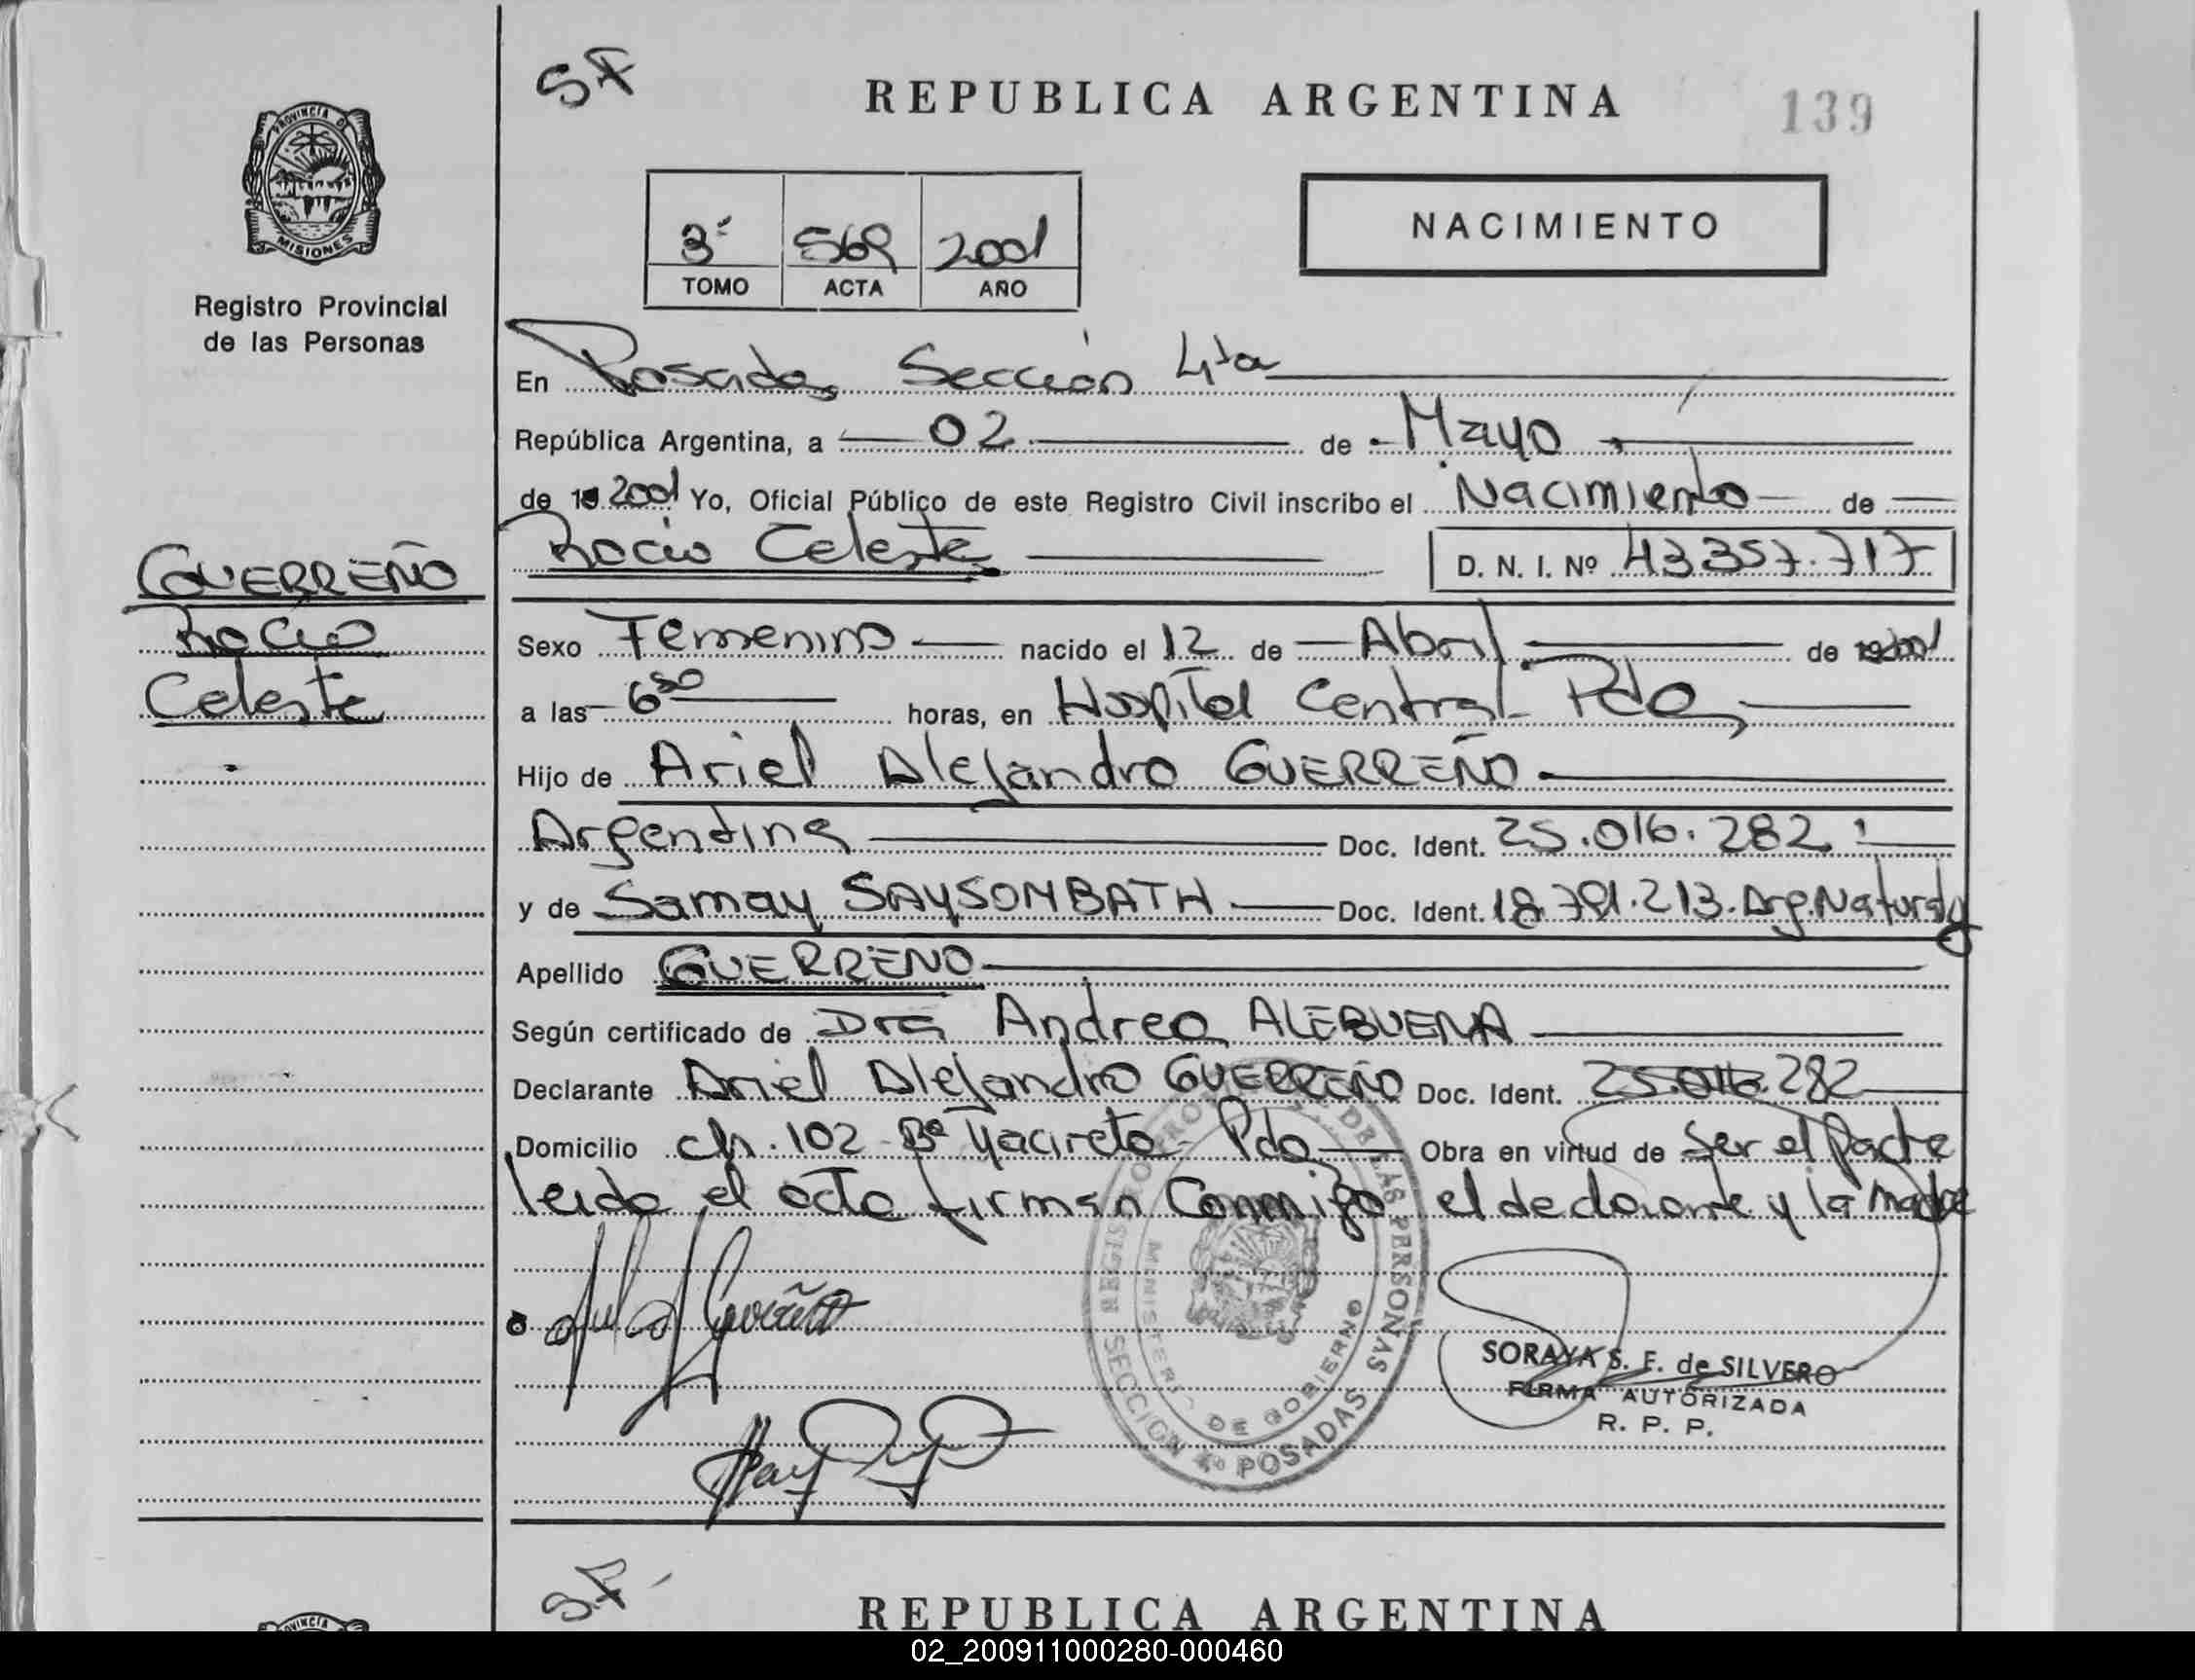 SF
REPUBLICA ARGENTINA
139
PROVINCIA DE
MISIONES
Registro Provincial
de las Personas
3º 569 2001
TOMO ACTA AÑO
NACIMIENTO
En Posadas Sección 4ta
República Argentina, a 02 de Mayo
de 19 2001 Yo, Oficial Público de este Registro Civil inscribo el Nacimiento de
Rocio Celeste D. N. I. Nº 43.357.717
GUERREÑO
Rocio
Celeste
Sexo Femenino nacido el 12 de Abril de 2001
a las 6 30 horas, en Hospital Central Pdas
Hijo de Ariel Alejandro GUERREÑO
Argentina Doc. Ident. 25.016.282
y de Samay SAYSOMBATH Doc. Ident. 18.791.213. Arg. Natural
Apellido GUERREÑO
Según certificado de Dra Andrea ALEBUENA
Declarante Ariel Alejandro GUERREÑO Doc. Ident. 25.016.282
Domicilio ch. 102 Bº Yacireta - Pdas Obra en virtud de Ser el Padre
leida el acta firman Conmigo el declarante y la madre
REGISTRO PROVINCIAL DE LAS PERSONAS
MINISTERIO DE GOBIERNO
SECCION 4º POSADAS
SORAYA S. F. de SILVERO
FIRMA AUTORIZADA
R. P. P.
SF
REPUBLICA ARGENTINA
02_200911000280-000460